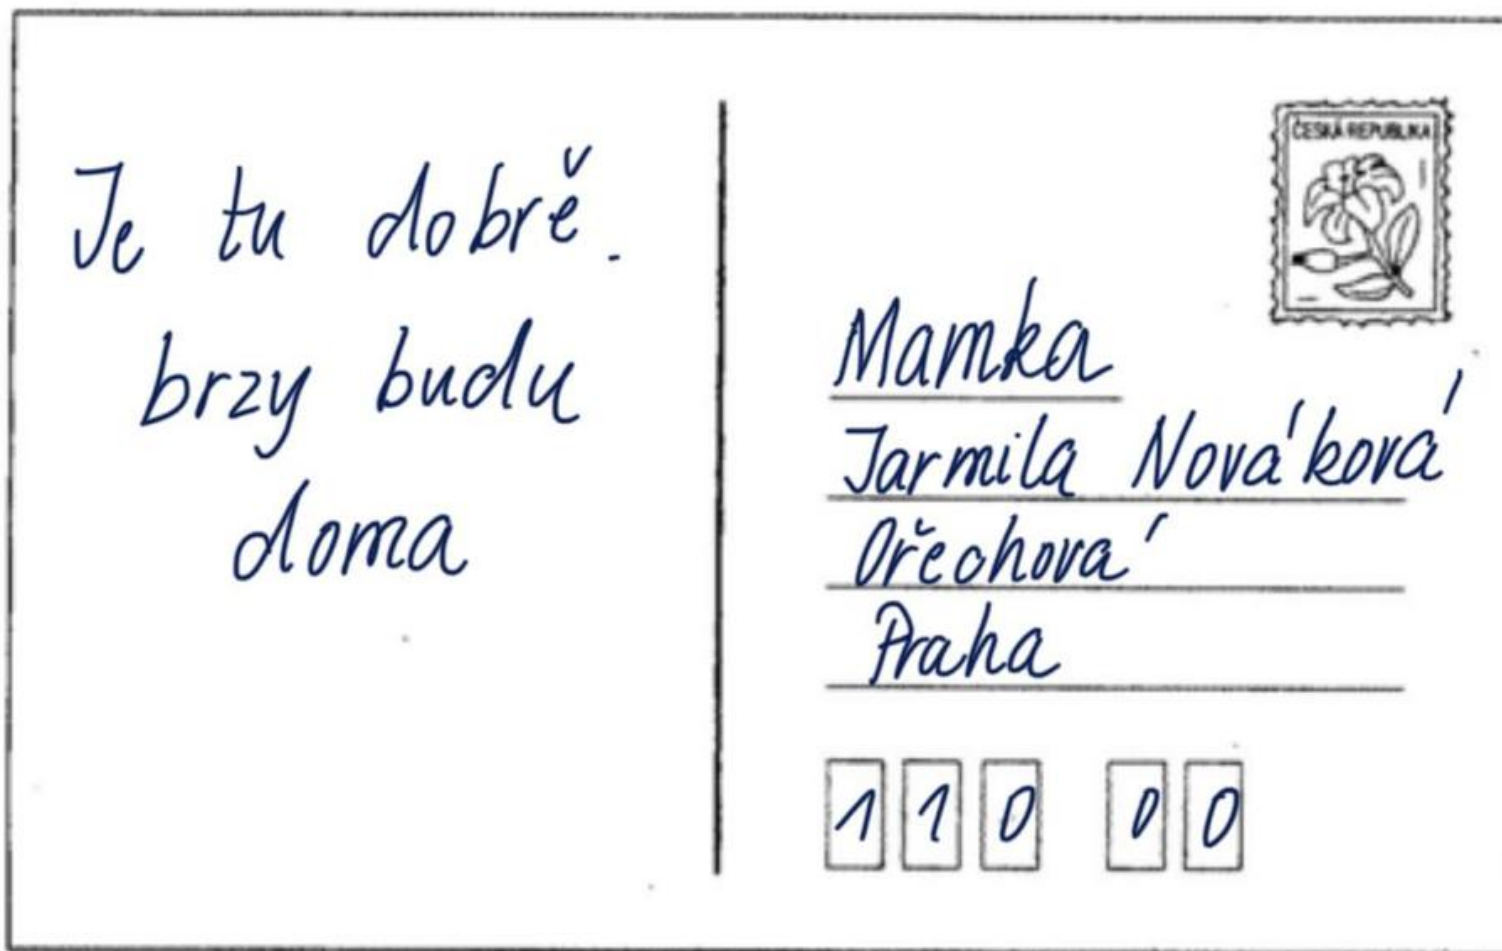 Je tu dobrě.
brzy budu
doma
ČESKÁ REPUBLIKA
Mamka
Jarmila Nováková
Ořechová
Praha
110 00